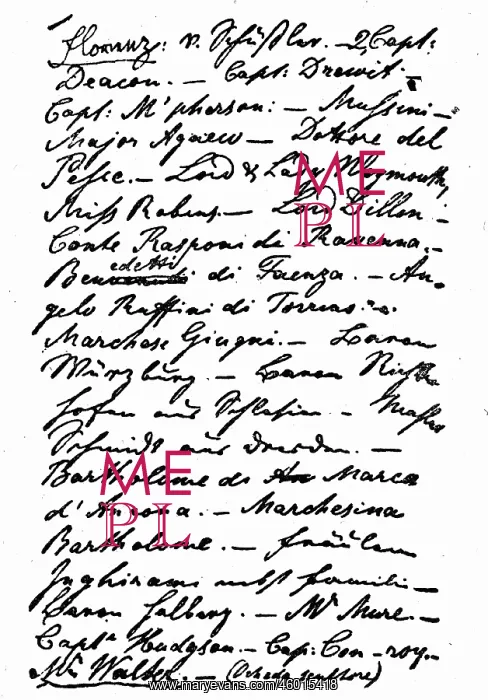 Florenz: v. Schüßler. — 2 Capt:
Deacon. — Capt: Drewit.
Capt: M'pherson: — Mussini —
Major Agaew — Dottore del
Pesce. — Lord & Lady Weymouth,
Miss Rabens. — Lord Dillon —
Conte Rasponi di Ravenna. —
Benedetti di Faenza. — An-
gelo Ruffini di
Marchese Giugni. — Baron
Würzburg. — Baron
hofen aus Schlesien — 
Schmidt aus Dresden. —
Bartholome de Marca
d'Ancona. — Marchesina
Bartholome. — Fräulein
Inghirami nebst Familie —
Baron — Mr Mure. —
Capt Hudgson. — Cap: Con-roy. —
Walter. —
ME
PL
ME
PL
www.maryevans.com/46015418